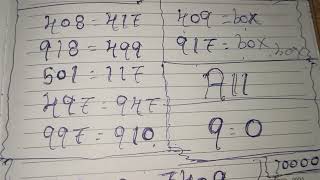 408 = 417
918 = 499
501 = 117
497 = 947
997 = 910
409 = box
917 = box
All
9 = 0
7409
70000